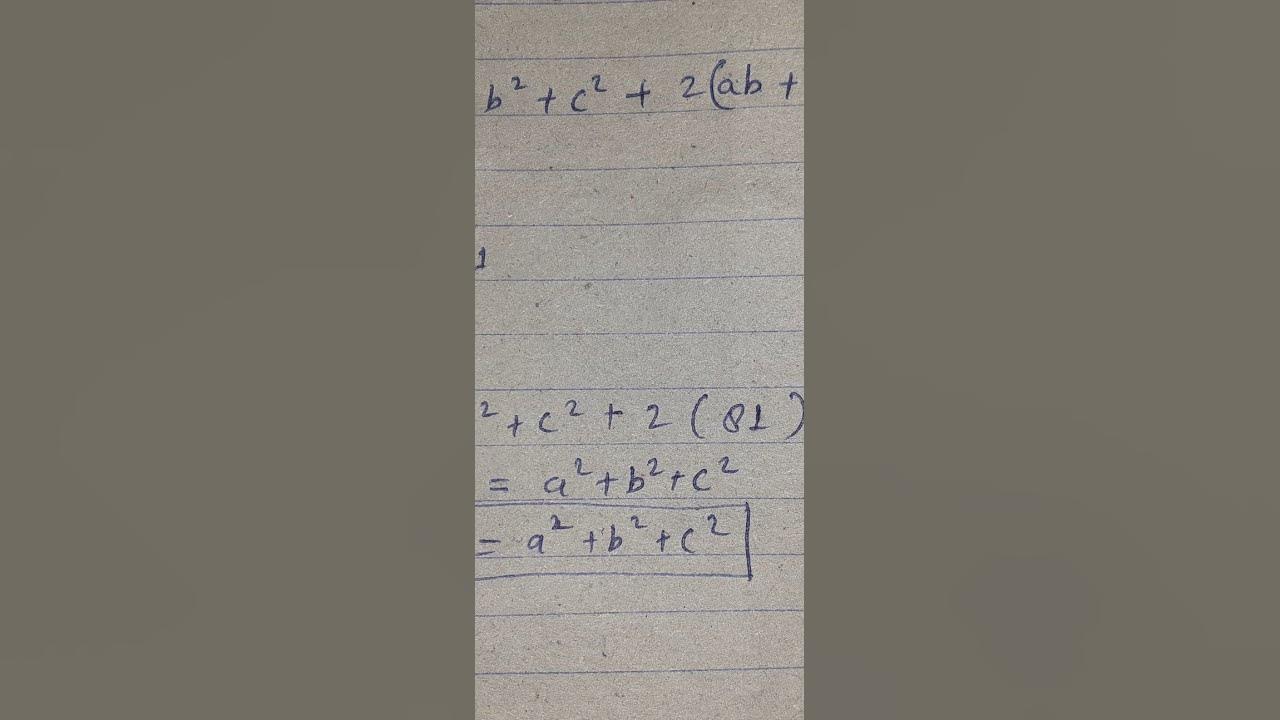 b² + c² + 2(ab +
1
² + c² + 2 (81)
= a² + b² + c²
= a² + b² + c²